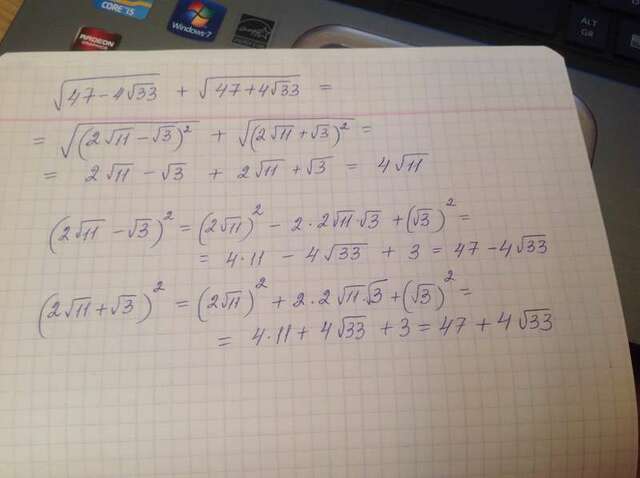 CORE i5
RADEON
GRAPHICS
Windows 7
ALT
GR
√(47-4√33) + √(47+4√33) =
= √((2√11-√3)²) + √((2√11+√3)²) =
= 2√11 - √3 + 2√11 + √3 = 4√11
(2√11 - √3)² = (2√11)² - 2·2√11·√3 + (√3)² =
= 4·11 - 4√33 + 3 = 47 - 4√33
(2√11 + √3)² = (2√11)² + 2·2√11·√3 + (√3)² =
= 4·11 + 4√33 + 3 = 47 + 4√33